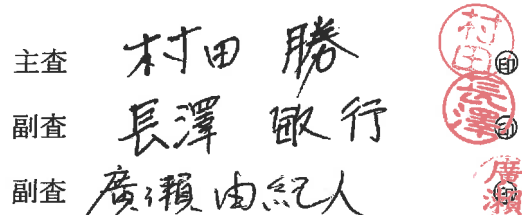 主査 村田 勝 村田 ㊞
副査 長澤 敏行 長澤 ㊞
副査 廣瀬 由紀人 廣瀬 ㊞